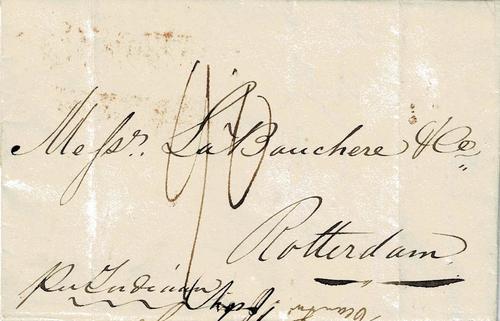 Messrs. La Bouchere & Co.
Rotterdam
Per Indiaan